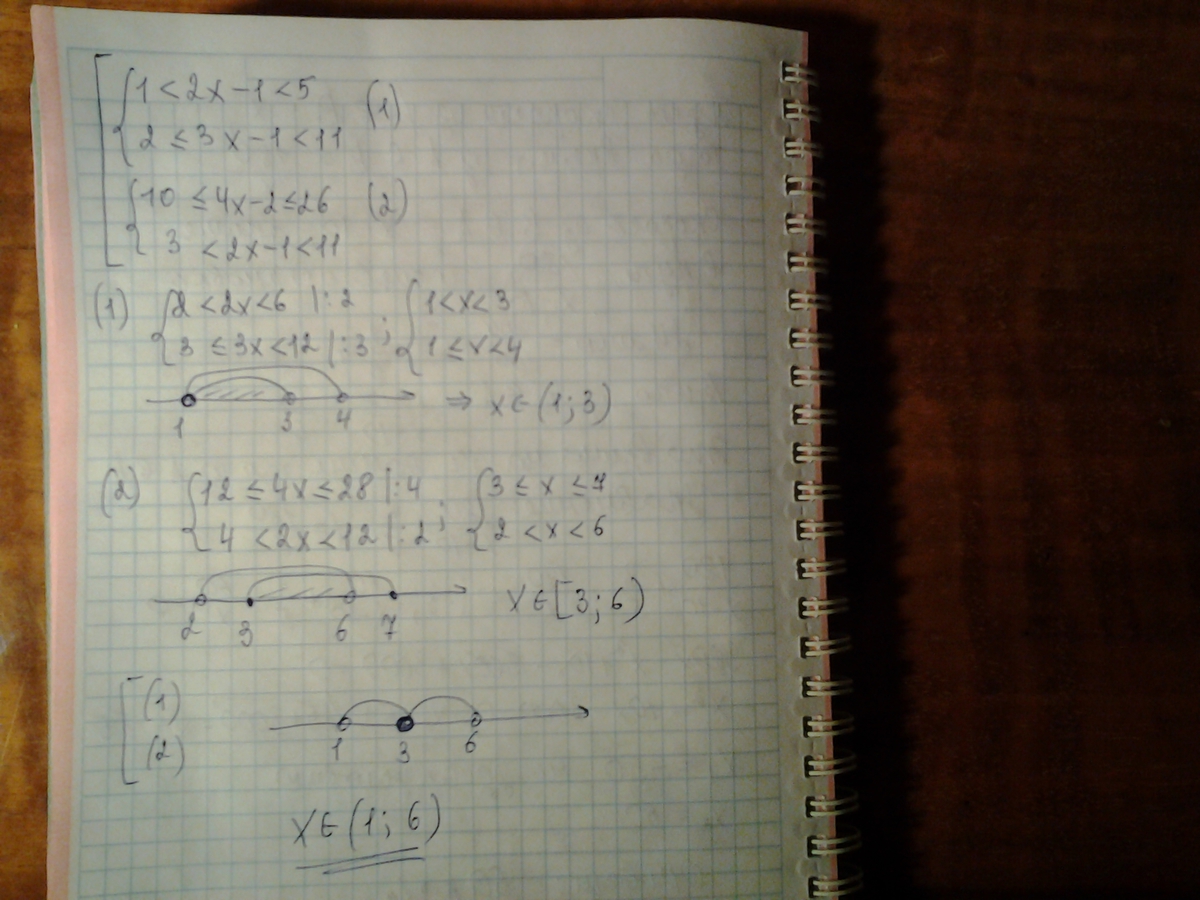 1 < 2x - 1 < 5 (1)
2 ≤ 3x - 1 < 11
10 ≤ 4x - 2 ≤ 26 (2)
3 < 2x - 1 < 11
(1) { 2 < 2x < 6 |:2 ; { 1 < x < 3
3 ≤ 3x < 12 |:3 1 ≤ x < 4
1 3 4 ⇒ x ∈ (1; 3)
(2) { 12 ≤ 4x ≤ 28 |:4 ; { 3 ≤ x ≤ 7
4 < 2x < 12 |:2 2 < x < 6
2 3 6 7 x ∈ [3; 6)
[ (1)
(2)
1 3 6
x ∈ (1; 6)